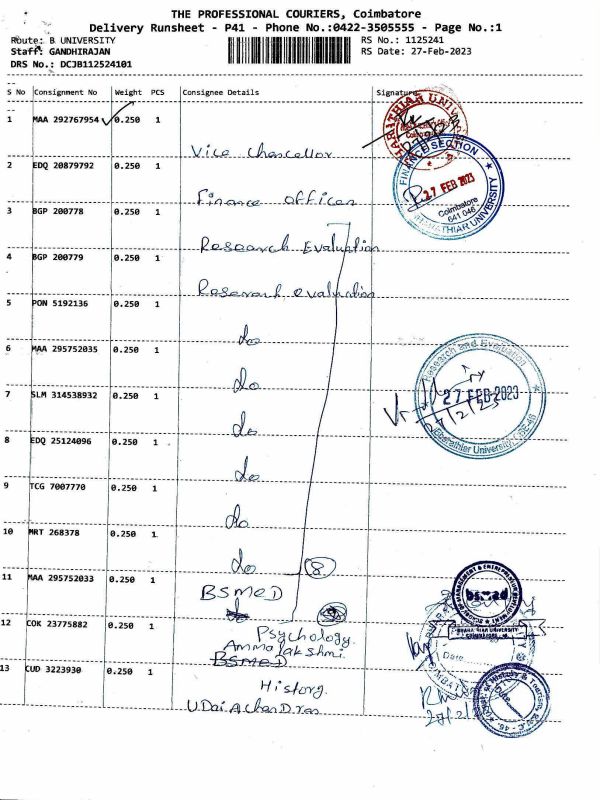 THE PROFESSIONAL COURIERS, Coimbatore
Delivery Runsheet - P41 - Phone No.:0422-3505555 - Page No.:1
Route: B UNIVERSITY
RS No.: 1125241
Staff: GANDHIRAJAN
RS Date: 27-Feb-2023
DRS No.: DCJB112524101
S No Consignment No Weight PCS Consignee Details Signature
1 MAA 292767954 0.250 1 Vice Chancellor
2 EDQ 20879792 0.250 1 Finance officer
FINANCE SECTION
27 FEB 2023
Coimbatore
641 046
BHARATHIAR UNIVERSITY
3 BGP 200778 0.250 1 Research Evaluation
4 BGP 200779 0.250 1 Research evaluation
5 PON 5192136 0.250 1 do
6 MAA 295752035 0.250 1 do
7 SLM 314538932 0.250 1 do
Research and Evaluation
27 FEB 2023
27/2/23
Bharathiar University, CBE-46
8 EDQ 25124096 0.250 1 do
9 TCG 7007770 0.250 1 do
10 MRT 268378 0.250 1 do 8
11 MAA 295752033 0.250 1 BSMED
bsmed
12 COK 23775882 0.250 1 Psychology.
Ammalakshmi.
BSMED
13 CUD 3223930 0.250 1 History.
UDaiAchanDran